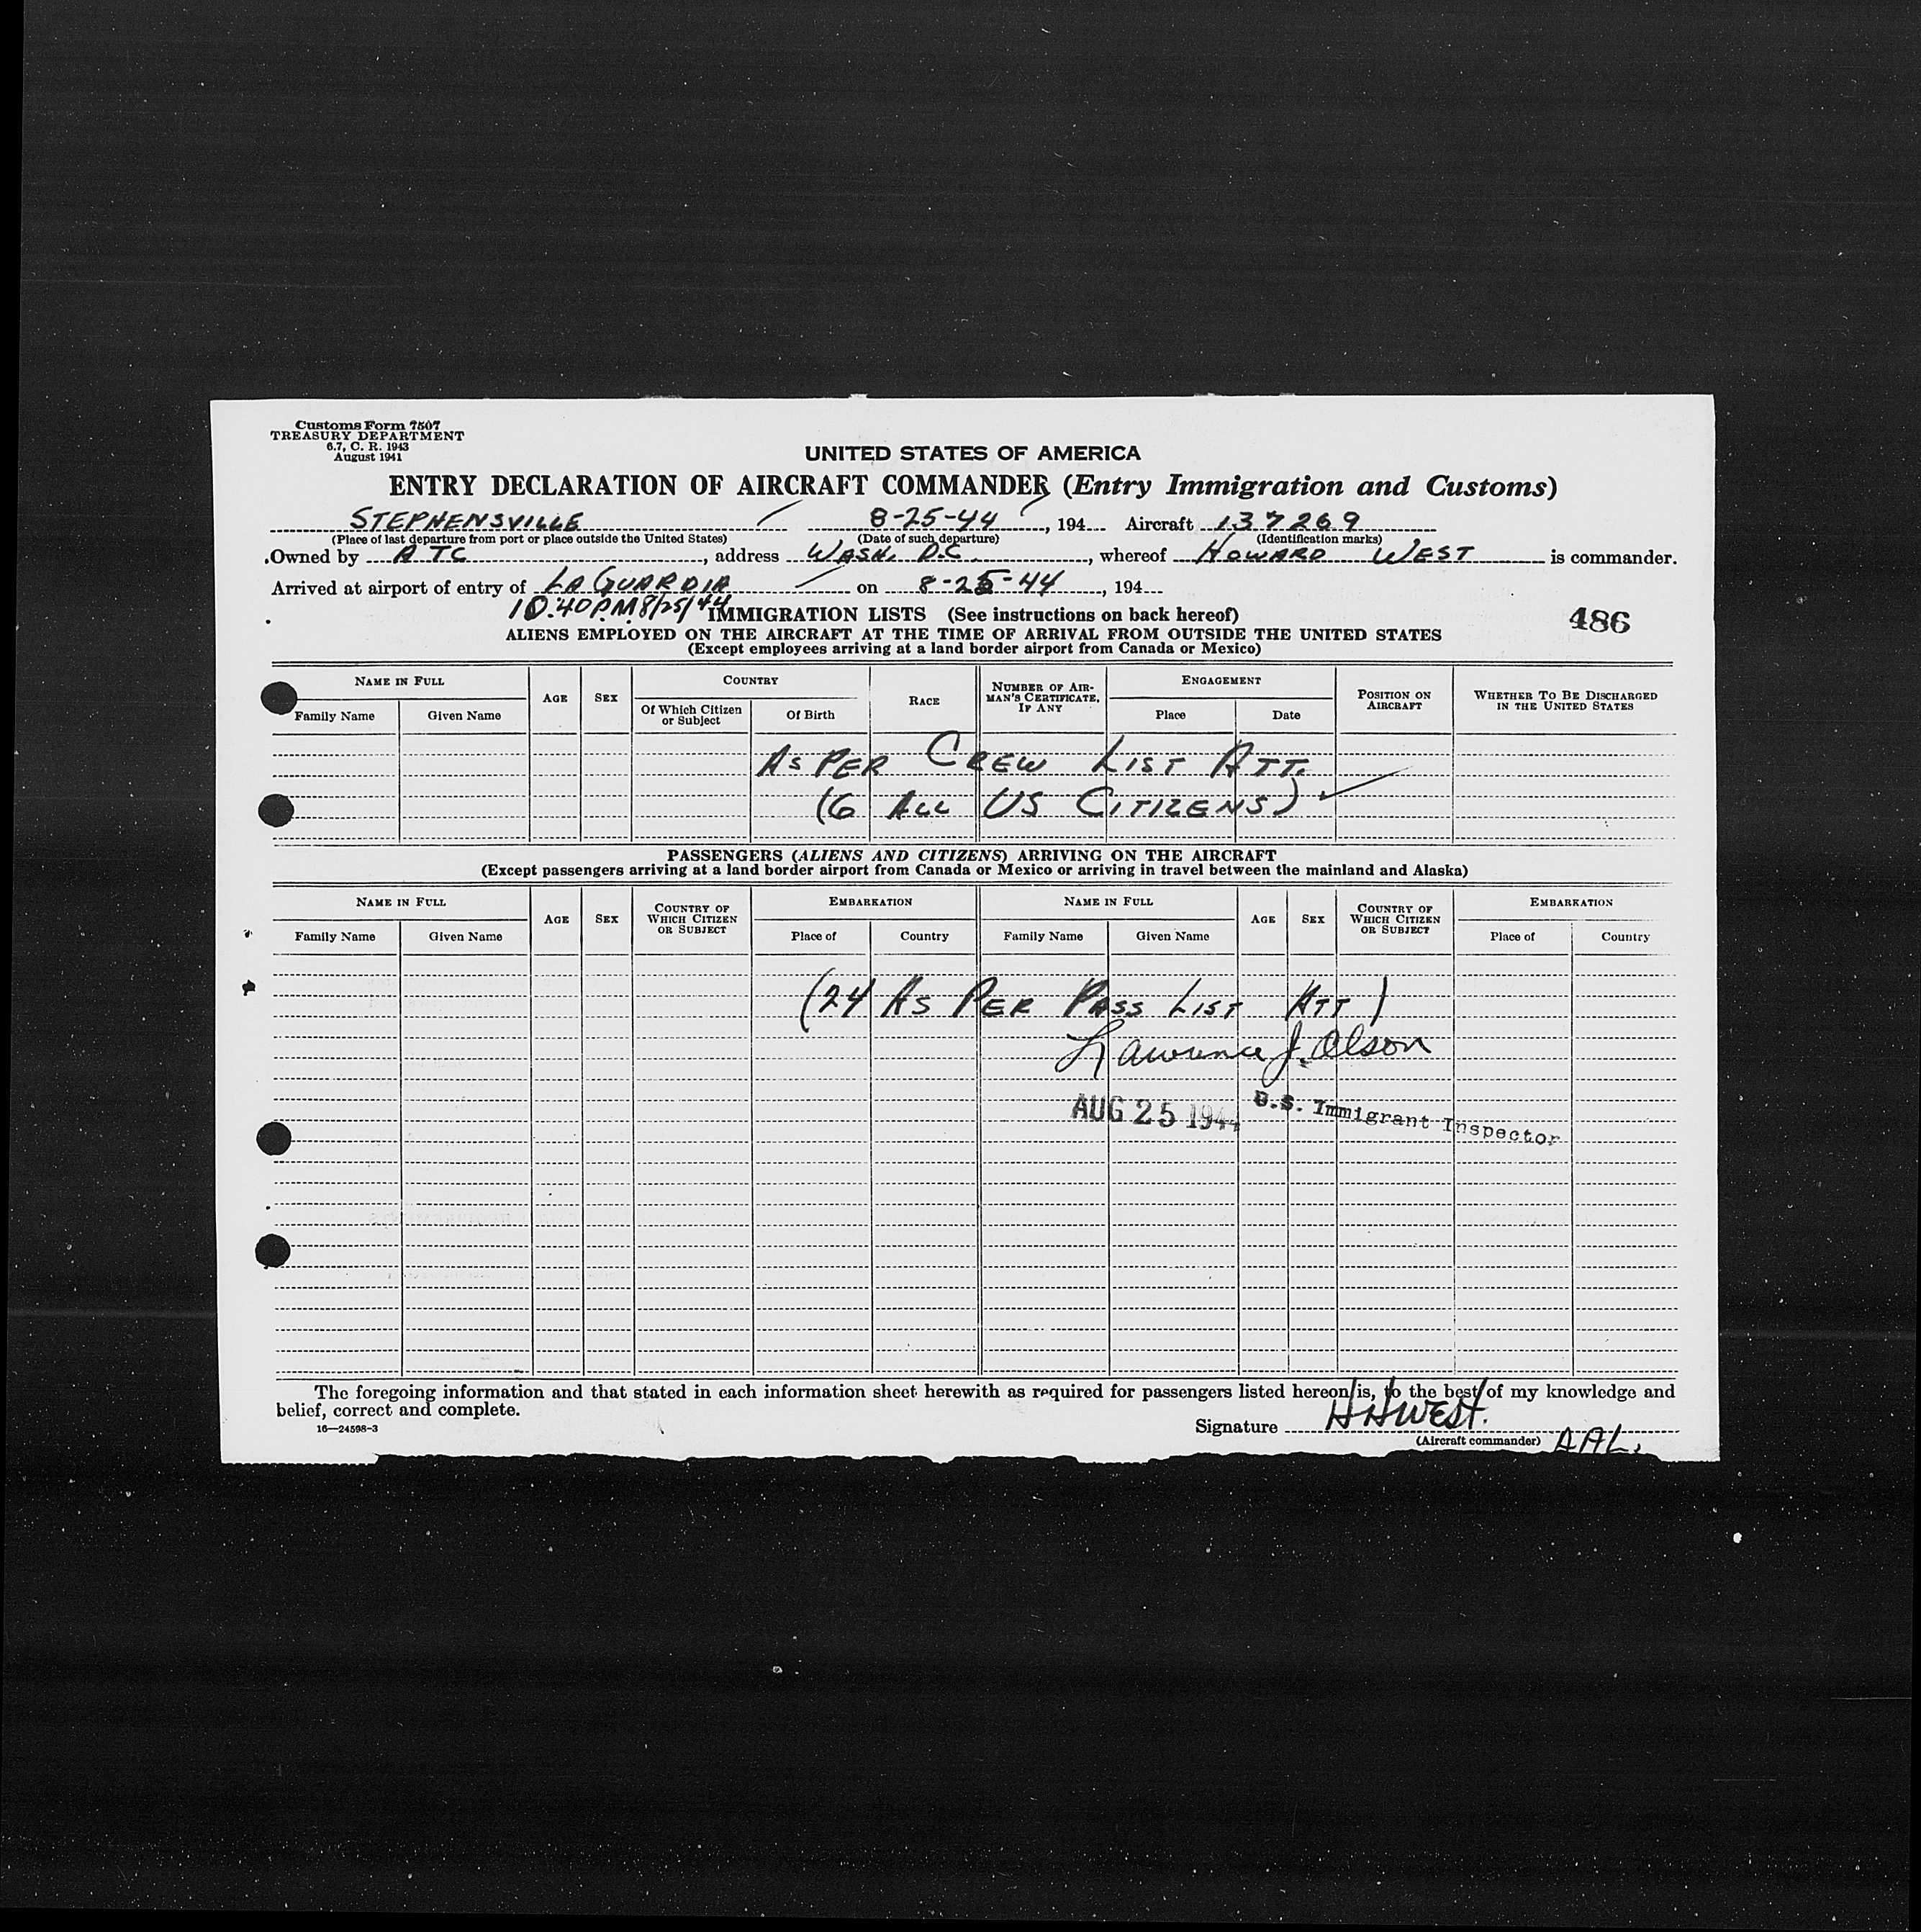 Customs Form 7507
TREASURY DEPARTMENT
6.7, C. R. 1943
August 1941
UNITED STATES OF AMERICA
ENTRY DECLARATION OF AIRCRAFT COMMANDER (Entry Immigration and Customs)
STEPHENSVILLE 8-25-44, 194 Aircraft 137269
(Place of last departure from port or place outside the United States) (Date of such departure) (Identification marks)
Owned by ATC, address WASH. D.C., whereof HOWARD WEST is commander.
Arrived at airport of entry of LA GUARDIA on 8-25-44, 194
10:40 P.M 8/25/44 IMMIGRATION LISTS (See instructions on back hereof) 486
ALIENS EMPLOYED ON THE AIRCRAFT AT THE TIME OF ARRIVAL FROM OUTSIDE THE UNITED STATES
(Except employees arriving at a land border airport from Canada or Mexico)
NAME IN FULL AGE SEX COUNTRY RACE NUMBER OF AIRMAN'S CERTIFICATE, IF ANY ENGAGEMENT POSITION ON AIRCRAFT WHETHER TO BE DISCHARGED IN THE UNITED STATES
Family Name Given Name Of Which Citizen or Subject Of Birth Place Date
AS PER CREW LIST ATT.
(6 ALL US CITIZENS)
PASSENGERS (ALIENS AND CITIZENS) ARRIVING ON THE AIRCRAFT
(Except passengers arriving at a land border airport from Canada or Mexico or arriving in travel between the mainland and Alaska)
NAME IN FULL AGE SEX COUNTRY OF WHICH CITIZEN OR SUBJECT EMBARKATION NAME IN FULL AGE SEX COUNTRY OF WHICH CITIZEN OR SUBJECT EMBARKATION
Family Name Given Name Place of Country Family Name Given Name Place of Country
(24 AS PER PASS LIST ATT)
Lawrence J. Olson
AUG 25 1944 U.S. Immigrant Inspector
The foregoing information and that stated in each information sheet herewith as required for passengers listed hereon is, to the best of my knowledge and
belief, correct and complete.
16—24598-3
Signature HHWEST.
(Aircraft commander) AAL.